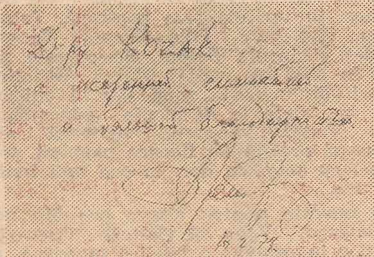 Д-ру Коčак
с искренней симпатией
и большой благодарностью
16 2 78